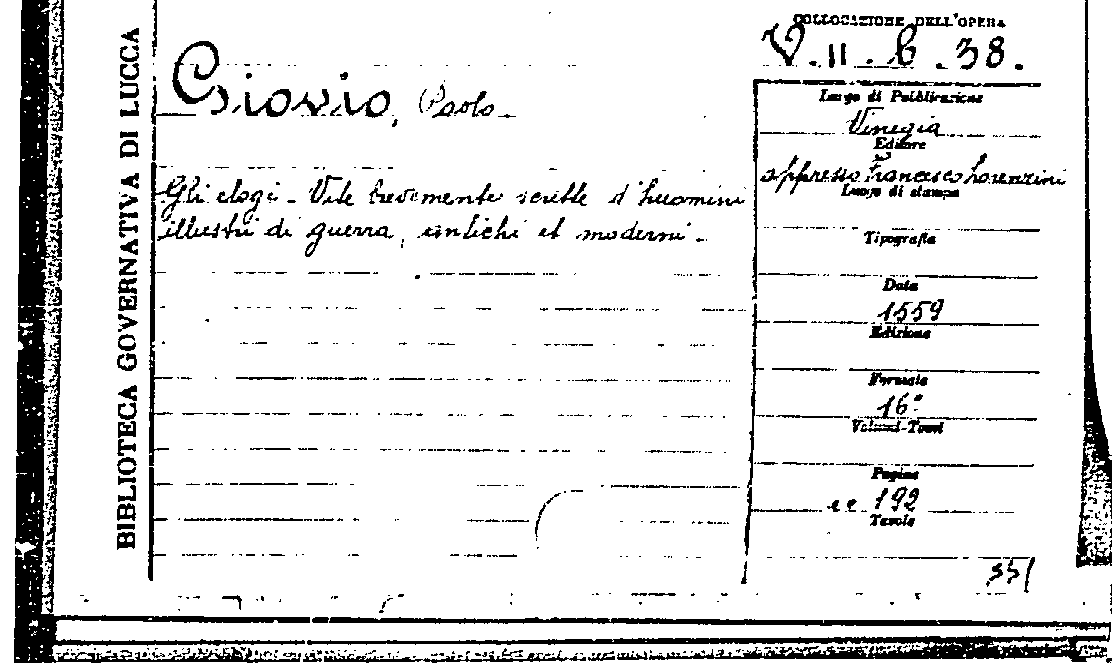 BIBLIOTECA GOVERNATIVA DI LUCCA
COLLOCAZIONE DELL'OPERA
V.II.b.38.
Giovio, Paolo
Gli elogi - Vite brevemente scritte d'huomini
illustri di guerra, antichi et moderni -
Luogo di Pubblicazione
Vinegia
Editore
appresso Francesco Lorenzini
Luogo di stampa
Tipografia
Data
1559
Edizione
Formato
16°
Volumi-Tomi
Pagine
cc 192
Tavole